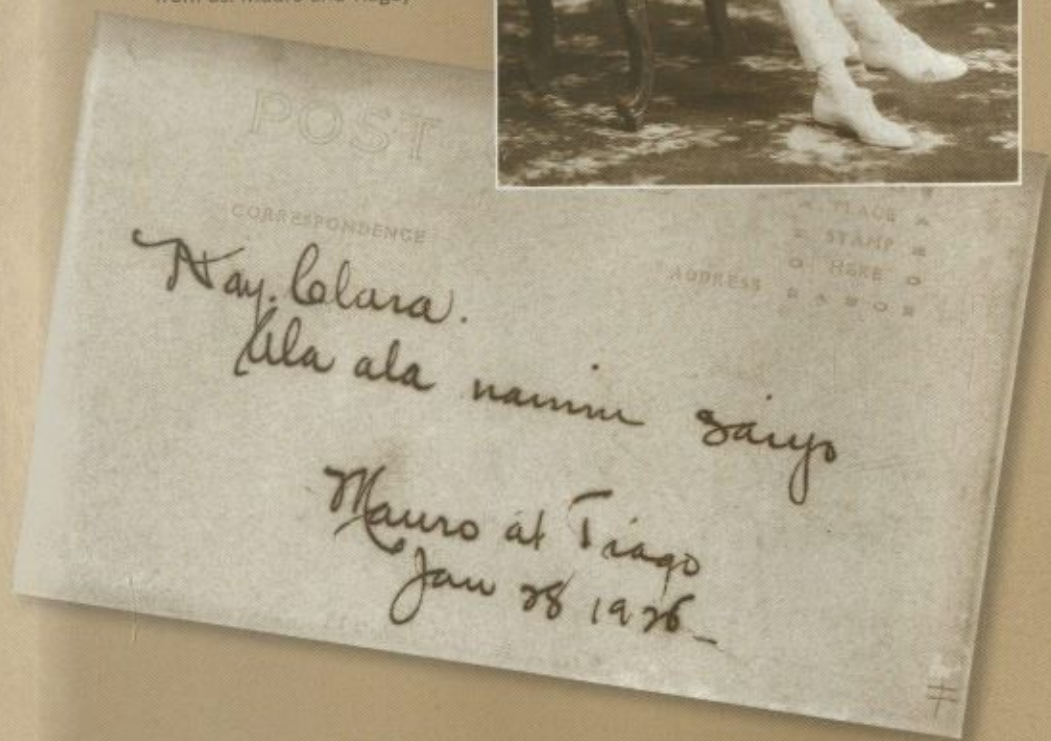 from us. Mauro and Tiago)
POST
CORRESPONDENCE
PLACE
STAMP
HERE
ADDRESS
Nay. Clara.
Ala ala namin saiyo
Mauro at Tiago
Jan 28 1926